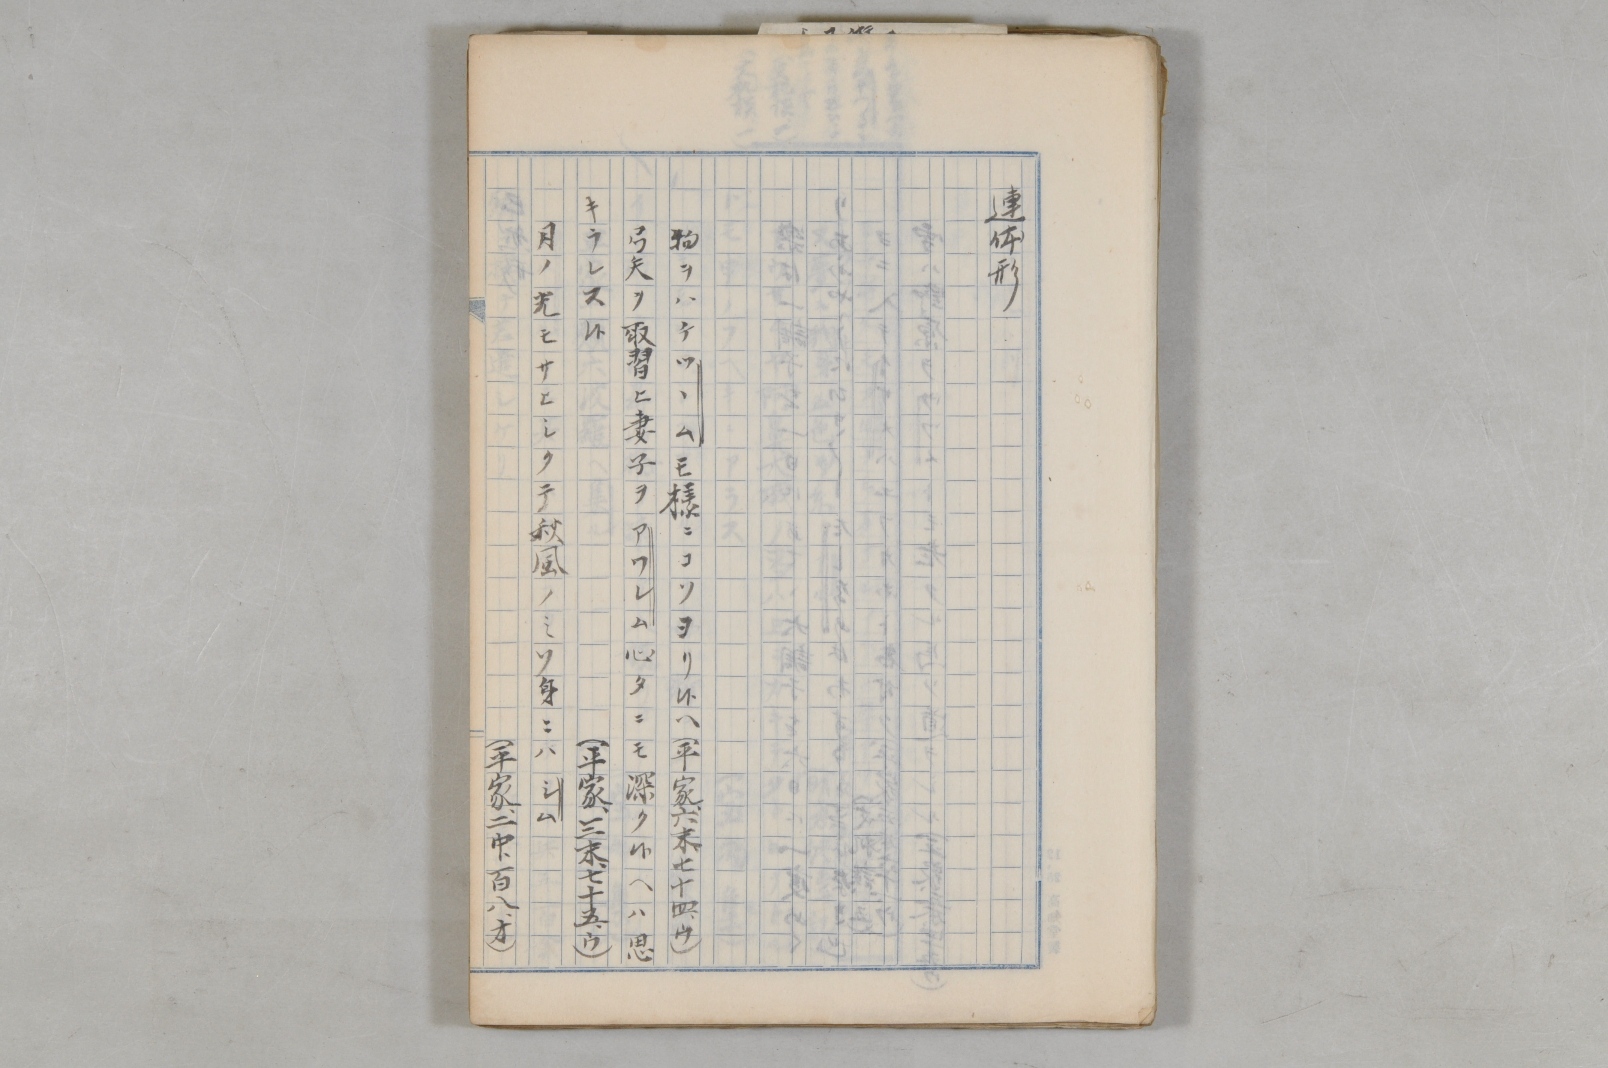 連体形
物ヲハテツヽムモ様ニコソヨリ候ヘ(平家、六末、七十四、ウ)
弓矢ヲ取習ヒ妻子ヲアワレム心タニモ深ク候ヘハ思
キラレス候(平家、三末、七十五、ウ)
月ノ光モサヒシクテ秋風ノミソ身ニハシム
(平家、二中、百八、オ)